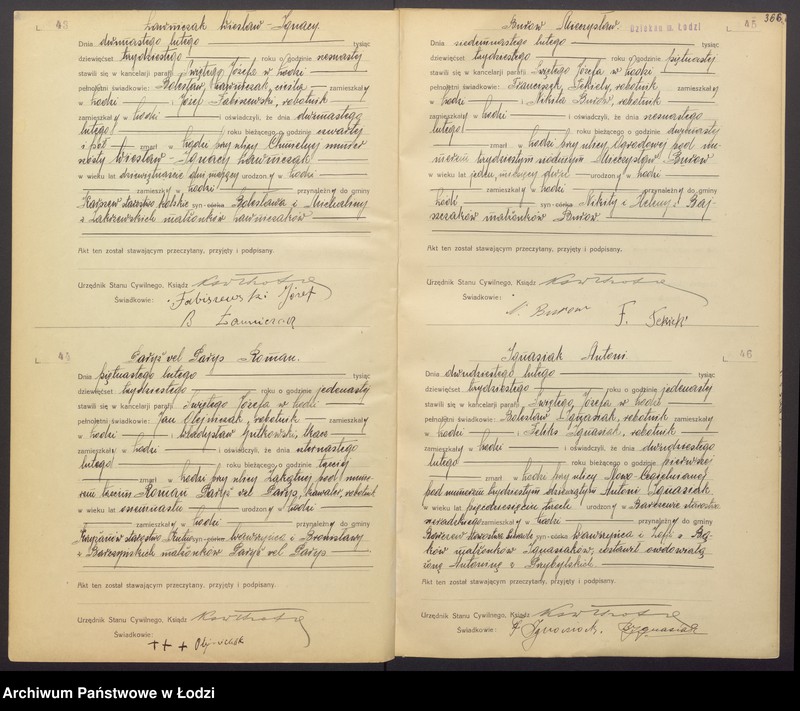 L 43
Ławniczak Wiesław-Ignacy.
Dnia dwunastego lutego tysiąc
dziewięćset trzydziestego roku o godzinie
stawili się w kancelarji parafji Świętego Józefa w Łodzi
pełnoletni świadkowie: Bolesław Ławniczak, zamieszkały
w Łodzi i Józef Fabiszewski, robotnik
zamieszkały w Łodzi i oświadczyli, że dnia dwunastego
lutego roku bieżącego o godzinie czwartej
i pół zmarł w Łodzi przy ulicy numer
Wiesław-Ignacy Ławniczak
w wieku lat dni mający urodzony w Łodzi
zamieszkały w Łodzi przynależny do gminy
starostwo syn-córka Bolesława i Michaliny
z małżonków Ławniczaków
Akt ten został stawającym przeczytany, przyjęty i podpisany.
Urzędnik Stanu Cywilnego, Ksiądz
Świadkowie: Fabiszewski Józef
B Ławniczak
L 44
Paryś vel Parys Roman.
Dnia piętnastego lutego tysiąc
dziewięćset trzydziestego roku o godzinie jedenastej
stawili się w kancelarji parafji Świętego Józefa w Łodzi
pełnoletni świadkowie: Jan Olejniczak, robotnik zamieszkały
w Łodzi i Władysław Gutkowski,
zamieszkały w Łodzi i oświadczyli, że dnia czternastego
lutego roku bieżącego o godzinie trzeciej
zmarł w Łodzi przy ulicy Zakątnej pod nume-
rem Roman Paryś vel Parys, kawaler, robotnik
w wieku lat osiemnastu urodzony w Łodzi
zamieszkały w Łodzi przynależny do gminy
Krzyżanów starostwo syn-córka Wawrzyńca i Bronisławy
z małżonków Paryś vel Parys
Akt ten został stawającym przeczytany, przyjęty i podpisany.
Urzędnik Stanu Cywilnego, Ksiądz
Świadkowie:
+++ Olejniczak
366
Dziekan m. Łodzi
L 45
Burow Mieczysław.
Dnia siedemnastego lutego tysiąc
dziewięćset trzydziestego roku o godzinie piętnastej
stawili się w kancelarji parafji Świętego Józefa w Łodzi
pełnoletni świadkowie: Franciszek, robotnik zamieszkały
w Łodzi i Nikita Burow, robotnik
zamieszkały w Łodzi i oświadczyli, że dnia szesnastego
lutego roku bieżącego o godzinie dwunastej
zmarł w Łodzi przy ulicy Ogrodowej pod nu-
merem trzydziestym siódmym Mieczysław Burow
w wieku lat jeden, miesięcy dwa urodzony w Łodzi
zamieszkały w Łodzi przynależny do gminy
Łódź syn-córka Nikity i Heleny z Baj-
szczaków małżonków Burow
Akt ten został stawającym przeczytany, przyjęty i podpisany.
Urzędnik Stanu Cywilnego, Ksiądz
Świadkowie: N. Burow
F.
L 46
Ignasiak Antoni
Dnia dwudziestego lutego tysiąc
dziewięćset trzydziestego roku o godzinie jedenastej
stawili się w kancelarji parafji Świętego Józefa w Łodzi
pełnoletni świadkowie: Bolesław Ignasiak, robotnik zamieszkały
w Łodzi i Feliks Ignasiak, robotnik
zamieszkały w Łodzi i oświadczyli, że dnia dwudziestego
lutego roku bieżącego o godzinie pierwszej
zmarł w Łodzi przy ulicy Nowo-Cegielnianej
pod numerem trzydziestym dziewiątym Antoni Ignasiak
w wieku lat pięćdziesięciu trzech urodzony w starostwo
sieradzkiego zamieszkały w Łodzi przynależny do gminy
starostwo syn-córka Wawrzyńca i Zofji z
małżonków Ignasiaków, zostawił owdowiałą
żonę Antoninę z
Akt ten został stawającym przeczytany, przyjęty i podpisany.
Urzędnik Stanu Cywilnego, Ksiądz
Świadkowie: F Ignasiak. B Ignasiak
Archiwum Państwowe w Łodzi